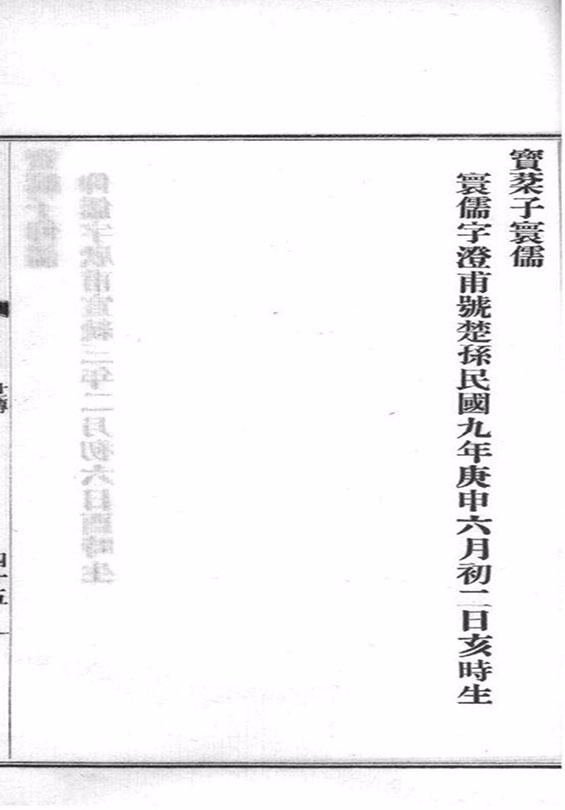 寶棻子寰儒
寰儒字澄甫號楚孫民國九年庚申六月初二日亥時生
世傳
四十五